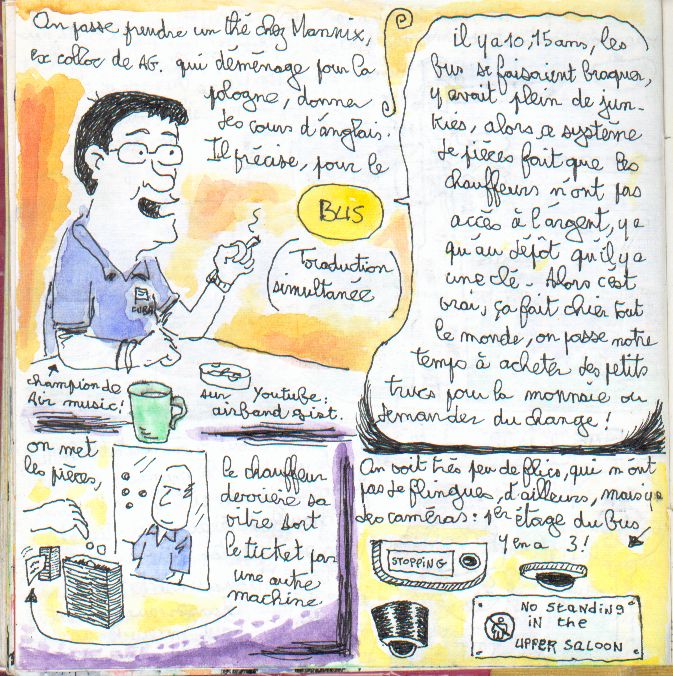 On passe prendre un thé chez Mannix,
ex colloc de AG. qui déménage pour la
pologne, donner
des cours d'anglais.
Il précise, pour le
BUS
(Traduction
simultanée)
il y a 10, 15 ans, les
bus se faisaient braquer,
y avait plein de jun-
kies, alors ce système
de pièces fait que les
chauffeurs n'ont pas
accès à l'argent, y a
qu'au dépôt qu'il y a
une clé. Alors c'est
vrai, ça fait chier tout
le monde, on passe notre
temps à acheter des petits
trucs pour la monnaie ou
demander du change!
CUBA
champion de
Air music!
sur Youtube:
airband
on met
les pièces,
le chauffeur
derrière sa
vitre sort
le ticket par
une autre
machine.
On voit très peu de flics, qui n'ont
pas de flingues, d'ailleurs, mais y a
des caméras: 1er étage du bus
y en a 3!
STOPPING
NO STANDING
IN the
UPPER SALOON